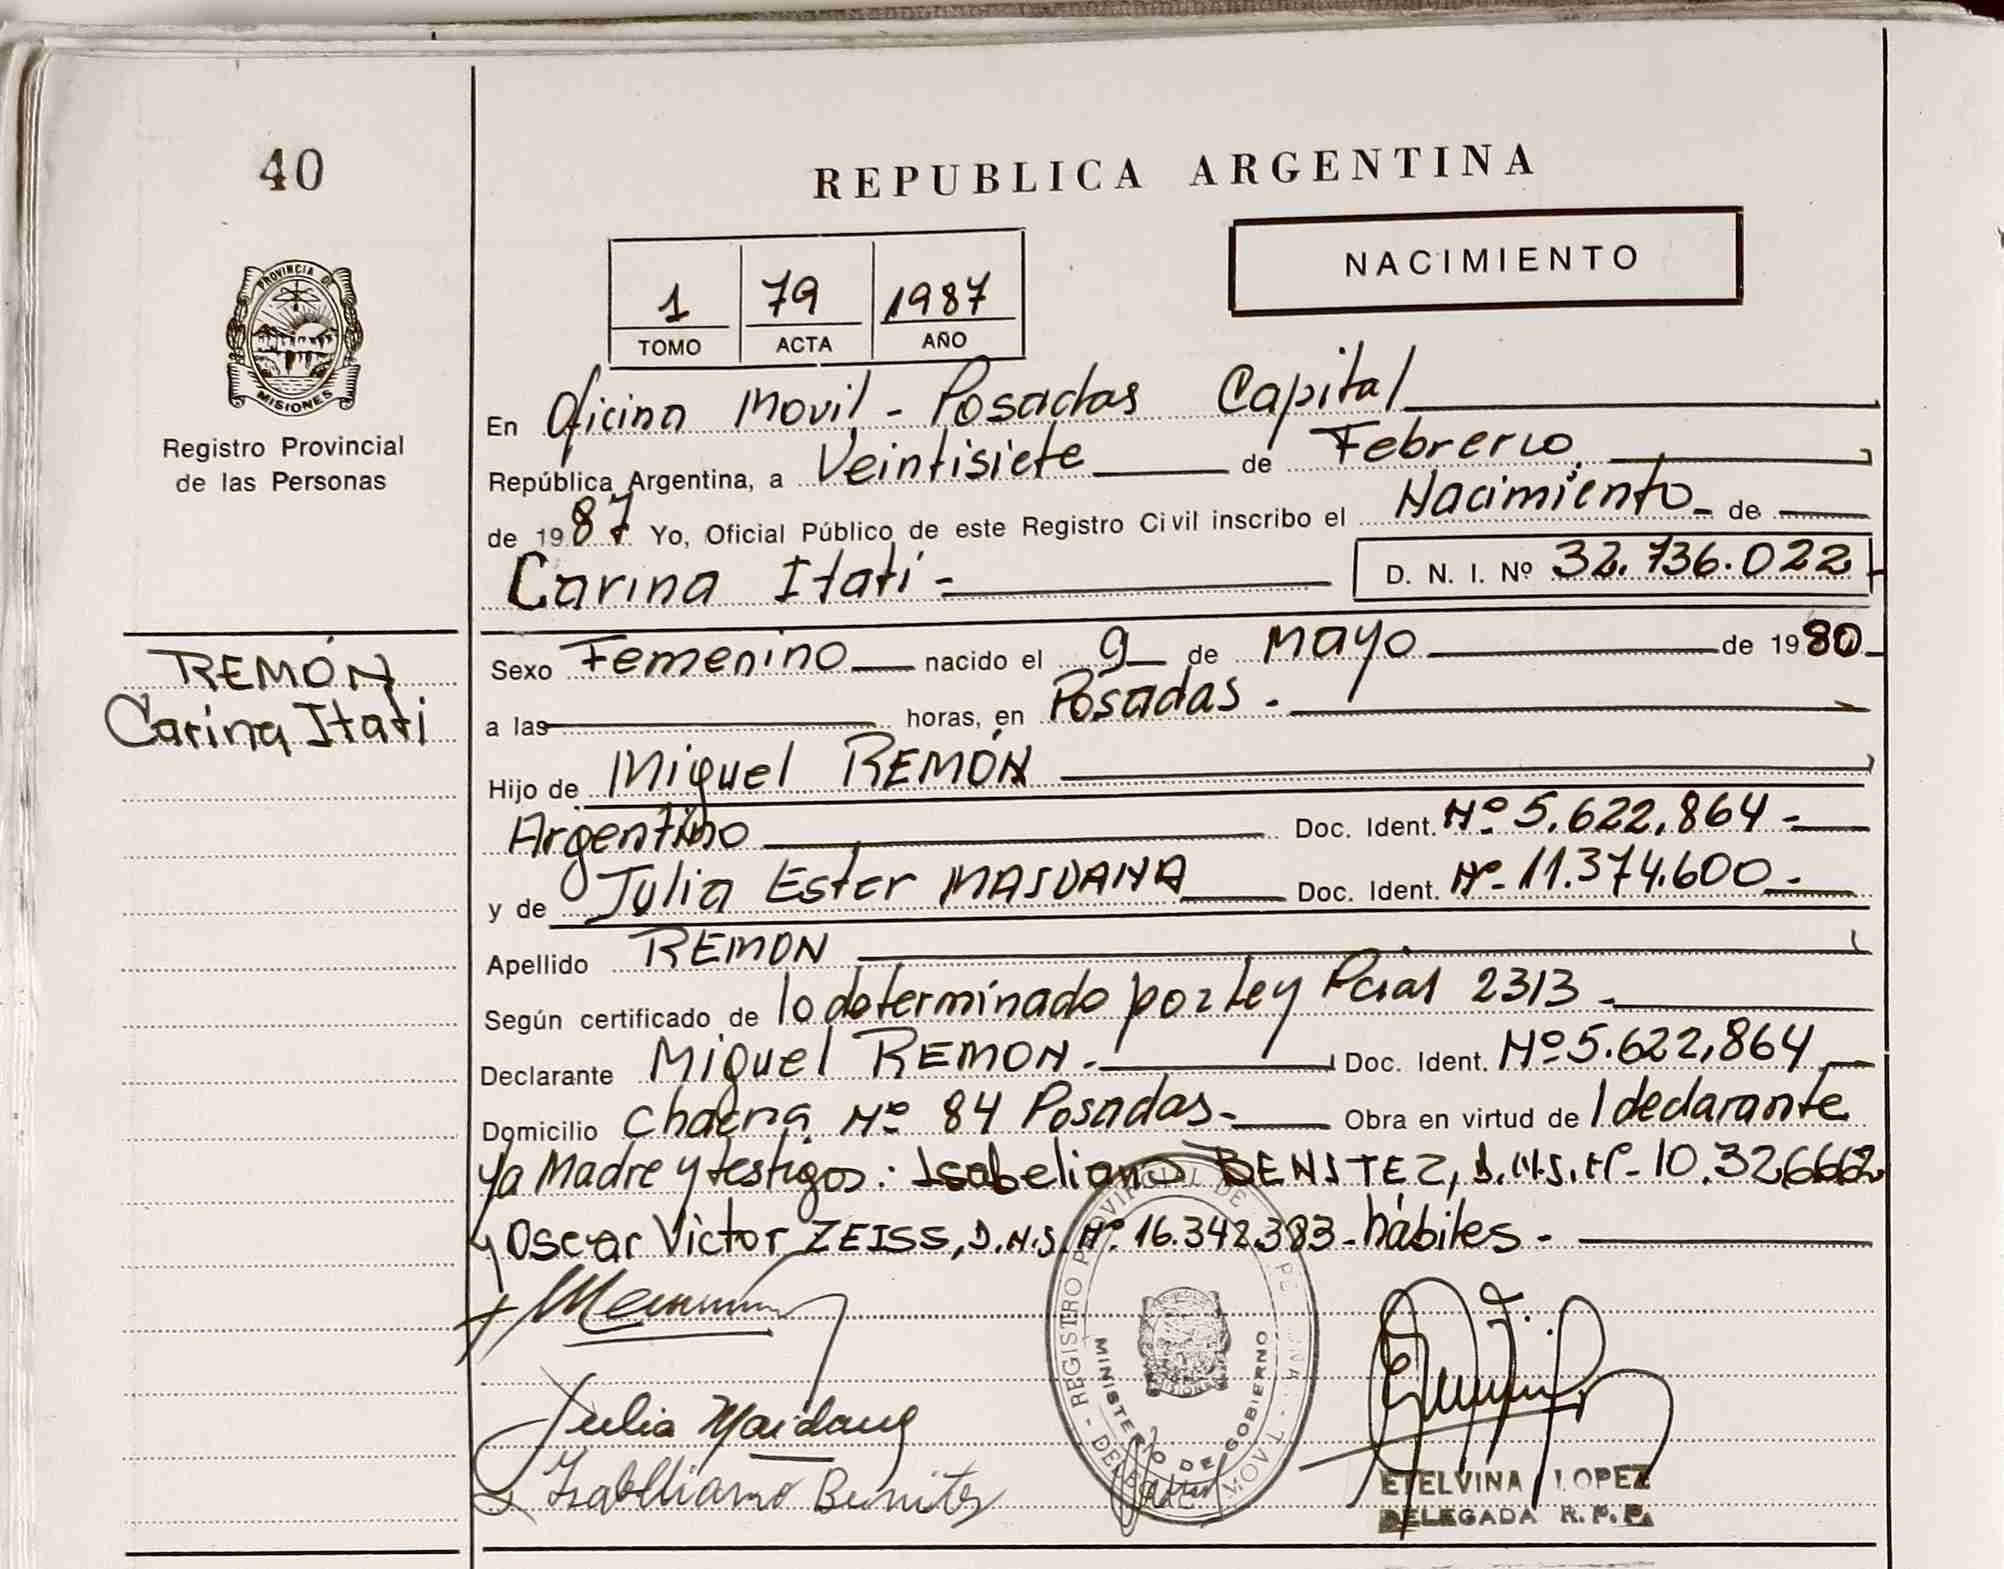 40
REPUBLICA ARGENTINA
NACIMIENTO
1 79 1987
TOMO ACTA AÑO
PROVINCIA DE
MISIONES
Registro Provincial
de las Personas
En Oficina Movil - Posadas Capital
República Argentina, a Veintisiete de Febrero
de 1987 Yo, Oficial Público de este Registro Civil inscribo el Nacimiento - de
Carina Itatí - D. N. I. Nº 32.736.022
REMÓN
Carina Itati
Sexo Femenino nacido el 9 de mayo de 1980
a las horas, en Posadas -
Hijo de Miguel REMÓN
Argentino Doc. Ident. Nº 5.622.864 -
y de Julia Ester MAIDANA Doc. Ident. Nº 11.374.600 -
Apellido REMON
Según certificado de lo determinado por Ley 2313 -
Declarante Miguel REMON - Doc. Ident. Nº 5.622.864
Domicilio Chacra Nº 84 Posadas - Obra en virtud de l declarante
y la Madre y testigos: Isabeliano BENITEZ, D.N.I. Nº 10.326.662
y Oscar Victor ZEISS, D.N.I. Nº 16.342.383 - hábiles -
Julia Maidana
Isabelliano Benitez
REGISTRO PROVINCIAL DE
MINISTERIO DE GOBIERNO
ETELVINA LOPEZ
DELEGADA R. P. P.